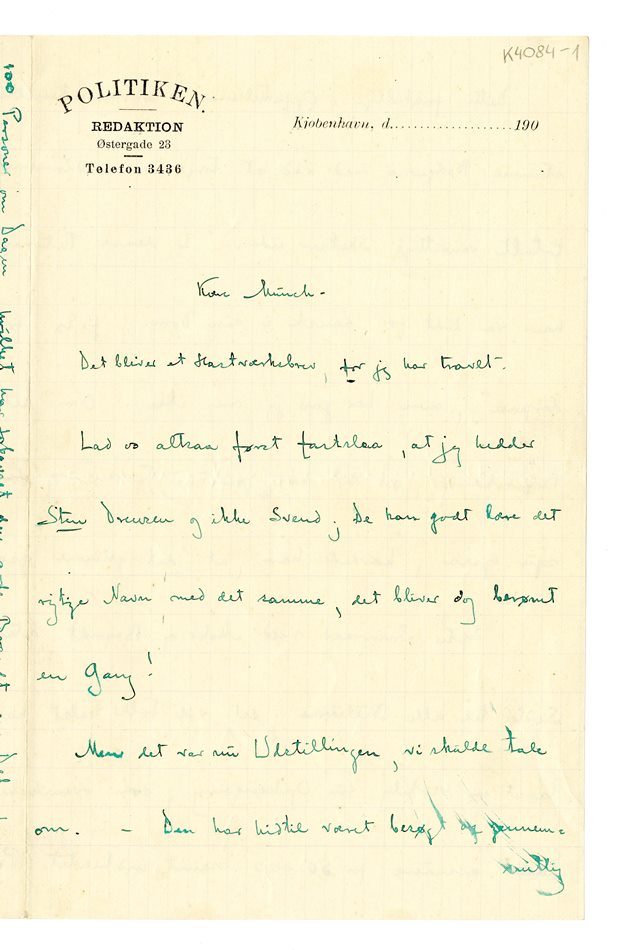 K4084-1
POLITIKEN.
REDAKTION
Østergade 23
Telefon 3436
Kjøbenhavn, d. .................... 190
Kære Münch -
Det bliver et Hastværksbrev, for jeg har travlt.
Lad os altsaa først fastslaa, at jeg hedder
Sten Drewsen og ikke Svend; De kan godt lære det
rigtige Navn med det samme, det bliver dog berømt
en Gang!
Men det var nu Udstillingen, vi skulde tale
om. - Den har hidtil været besøgt af gennem=
snitlig
100 Personer om Dagen hvilket har